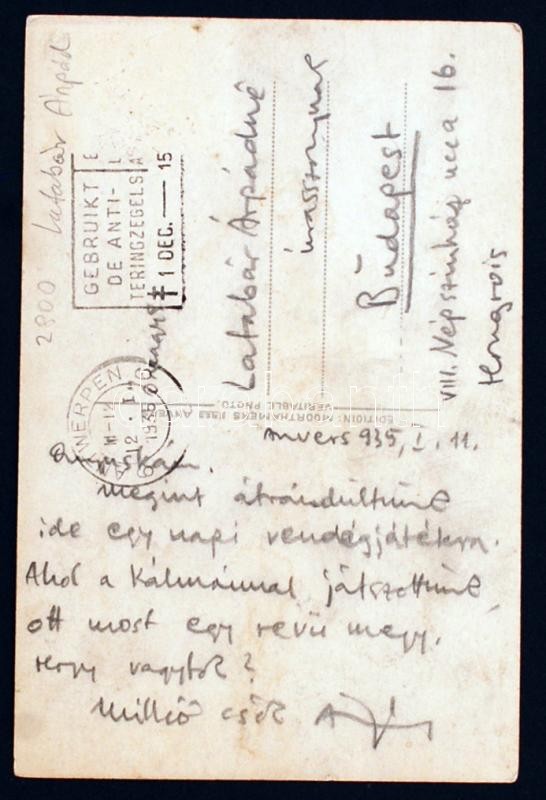 2800 Latabár Árpád
GEBRUIKT
DE ANTI-
TERINGZEGELS
1 DEC. — 15
ANTWERPEN
XI-12
12 · I
1935
Latabár Árpádné
Budapest
VIII. Népszínház ucca 16.
Hongrois
VERITABLE PHOTO.
Anvers 935, I. 11.
megint átrándultunk
ide egy napi vendégjátékra.
Ahol a Kálmánnal játszottunk
ott most egy revü megy.
Hogy vagytok?
Millió csók